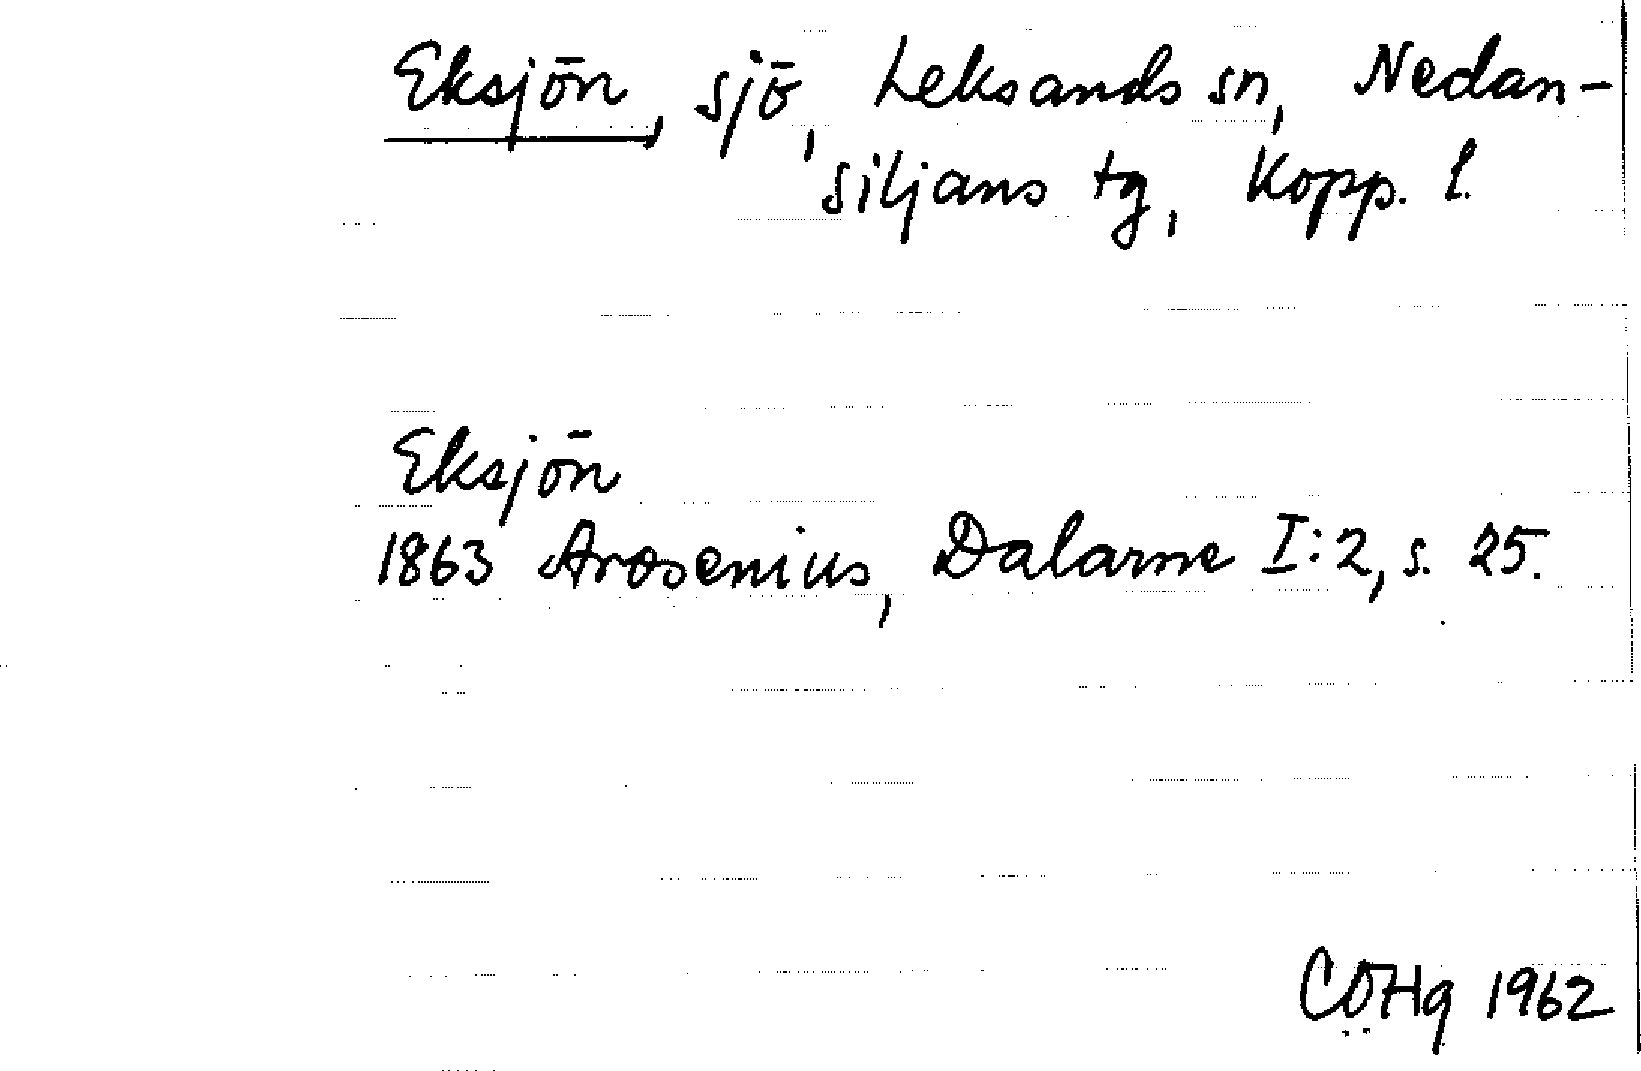 Eksjön, sjö, Leksands sn, Nedan-
siljans tg, Kopp. l.
Eksjön
1863 Arosenius, Dalarne I:2, s. 25.
CÖHg 1962